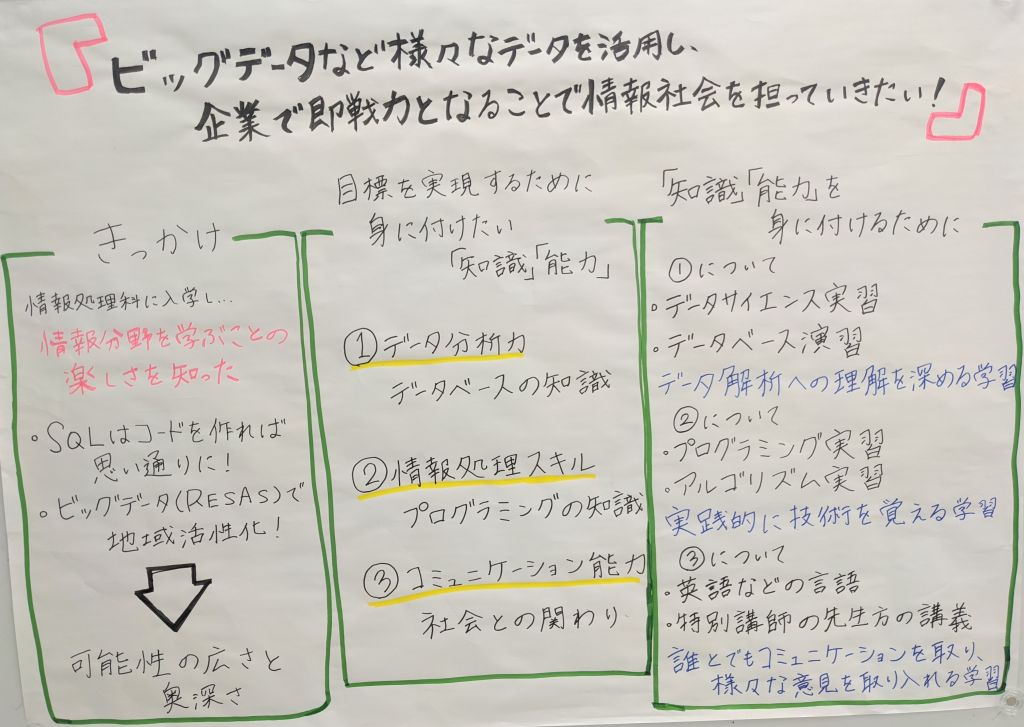 『ビッグデータなど様々なデータを活用し、
企業で即戦力となることで情報社会を担っていきたい!』
きっかけ
情報処理科に入学し...
情報分野を学ぶことの
楽しさを知った
・SQLはコードを作れば
思い通りに!
・ビッグデータ(RESAS)で
地域活性化!
可能性の広さと
奥深さ
目標を実現するために
身に付けたい
「知識」「能力」
①データ分析力
データベースの知識
②情報処理スキル
プログラミングの知識
③コミュニケーション能力
社会との関わり
「知識」「能力」を
身に付けるために
①について
・データサイエンス実習
・データベース演習
データ解析への理解を深める学習
②について
・プログラミング実習
・アルゴリズム実習
実践的に技術を覚える学習
③について
・英語などの言語
・特別講師の先生方の講義
誰とでもコミュニケーションを取り、
様々な意見を取り入れる学習